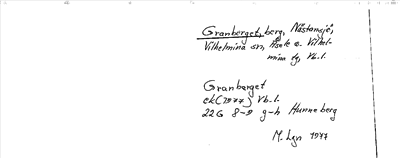 Granberget, berg, Nästansjö,
Vilhelmina sn, Åsele o. Vilhel-
mina tg, Vb.l.
Granberget
ek(1977) Vb.l.
22G 8-9 g-h Hunneberg
M. Lgn 1977